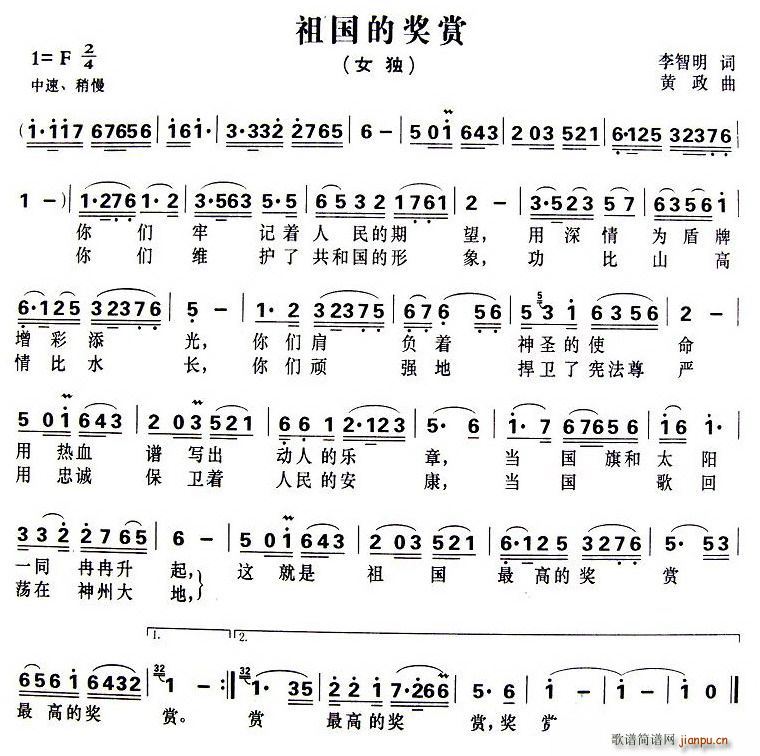 祖国的奖赏
(女 独)
1= F 2/4
中速、稍慢
李智明 词
黄 政 曲
(1·117 67656 | 161· | 3·332 2765 | 6 - | 501 643 | 203 521 | 6·125 32376 |
1 - ) | 1·276 1·2 | 3·563 5·5 | 6532 1761 | 2 - | 3·523 57 | 63561 |
你 们 牢 记着 人 民的期 望, 用深 情 为盾牌
你 们 维 护了 共和国的形 象, 功 比 山 高
6·125 32376 | 5 - | 1·2 32375 | 676 56 | 531 6356 | 2 - |
增彩添 光, 你们肩 负着 神圣的使 命
情比水 长, 你们顽 强地 捍卫了宪法尊 严
501 643 | 203 521 | 661 2·123 | 5·6 | 1·7 67656 | 16 1· |
用热血 谱写出 动人的乐 章, 当国旗和太阳
用忠诚 保卫着 人民的安 康, 当国 歌回
332 2765 | 6 - | 501 643 | 203 521 | 6·125 3276 | 5· 53 |
一同 冉冉升 起, 这就是 祖 国 最高的奖 赏
荡在 神州大 地,
1. 2.
6561 6432 | 32 1 - :| 32 1· 35 | 221 7·266 | 5·5 | 1 - | 1 0 |
最高的奖 赏。 赏 最高的奖 赏,奖 赏
歌谱简谱网
jianpu.cn